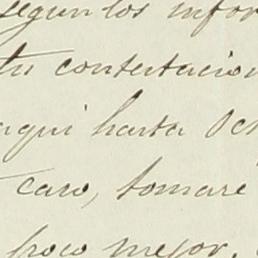 segun los infor
tu contestacion
aqui hasta Oc
caso, tomaré
poco mejor,